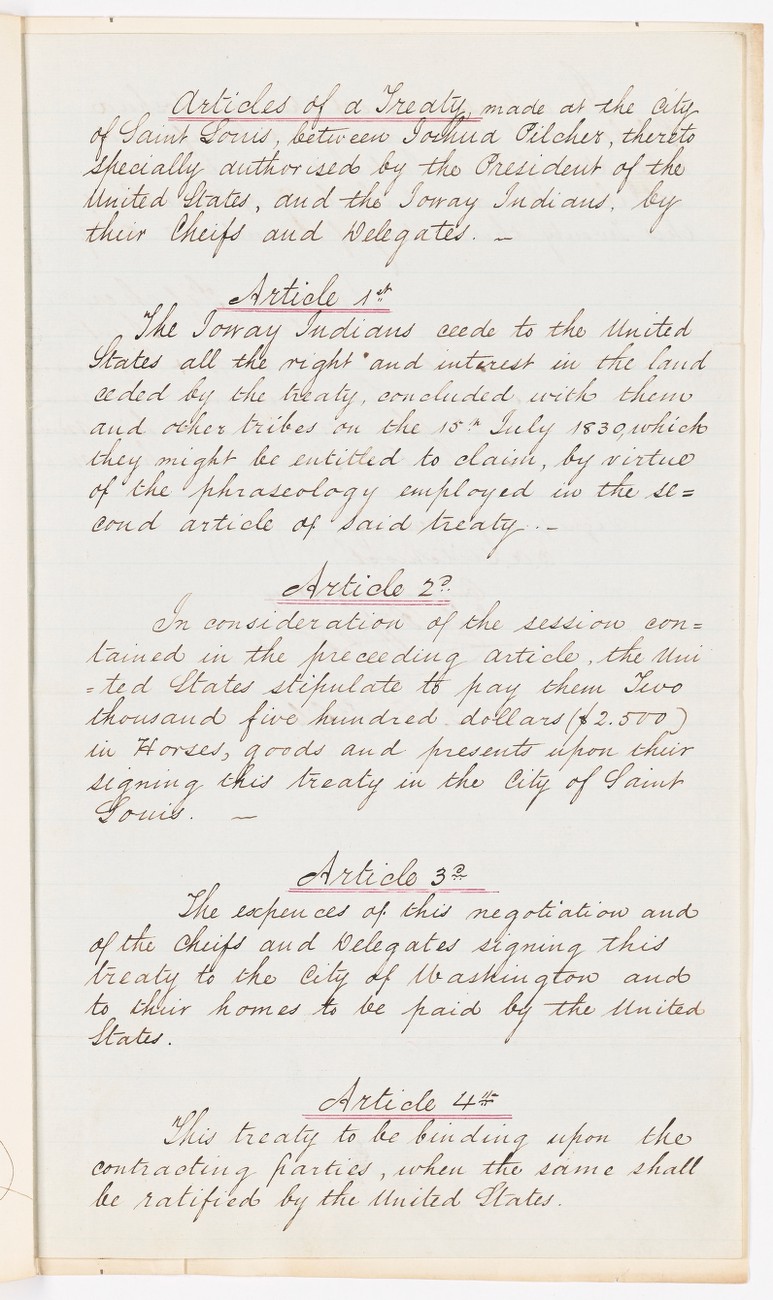 Articles of a Treaty, made at the City
of Saint Louis, between Joshua Pilcher, thereto
specially authorised by the President of the
United States, and the Ioway Indians, by
their Cheifs and Delegates. —
Article 1st
The Ioway Indians ceede to the United
States all the right and interest in the land
ceded by the treaty, concluded with them
and other tribes on the 15th July 1830, which
they might be entitled to claim, by virtue
of the phraseology employed in the se=
cond article of said treaty. —
Article 2d
In consideration of the session con=
tained in the preceeding article, the Uni
=ted States stipulate to pay them Two
thousand five hundred dollars ($2.500)
in Horses, goods and presents upon their
signing this treaty in the City of Saint
Louis. —
Article 3d
The expences of this negotiation and
of the Cheifs and Delegates signing this
treaty to the City of Washington and
to their homes to be paid by the United
States.
Article 4th
This treaty to be binding upon the
contracting parties, when the same shall
be ratified by the United States.